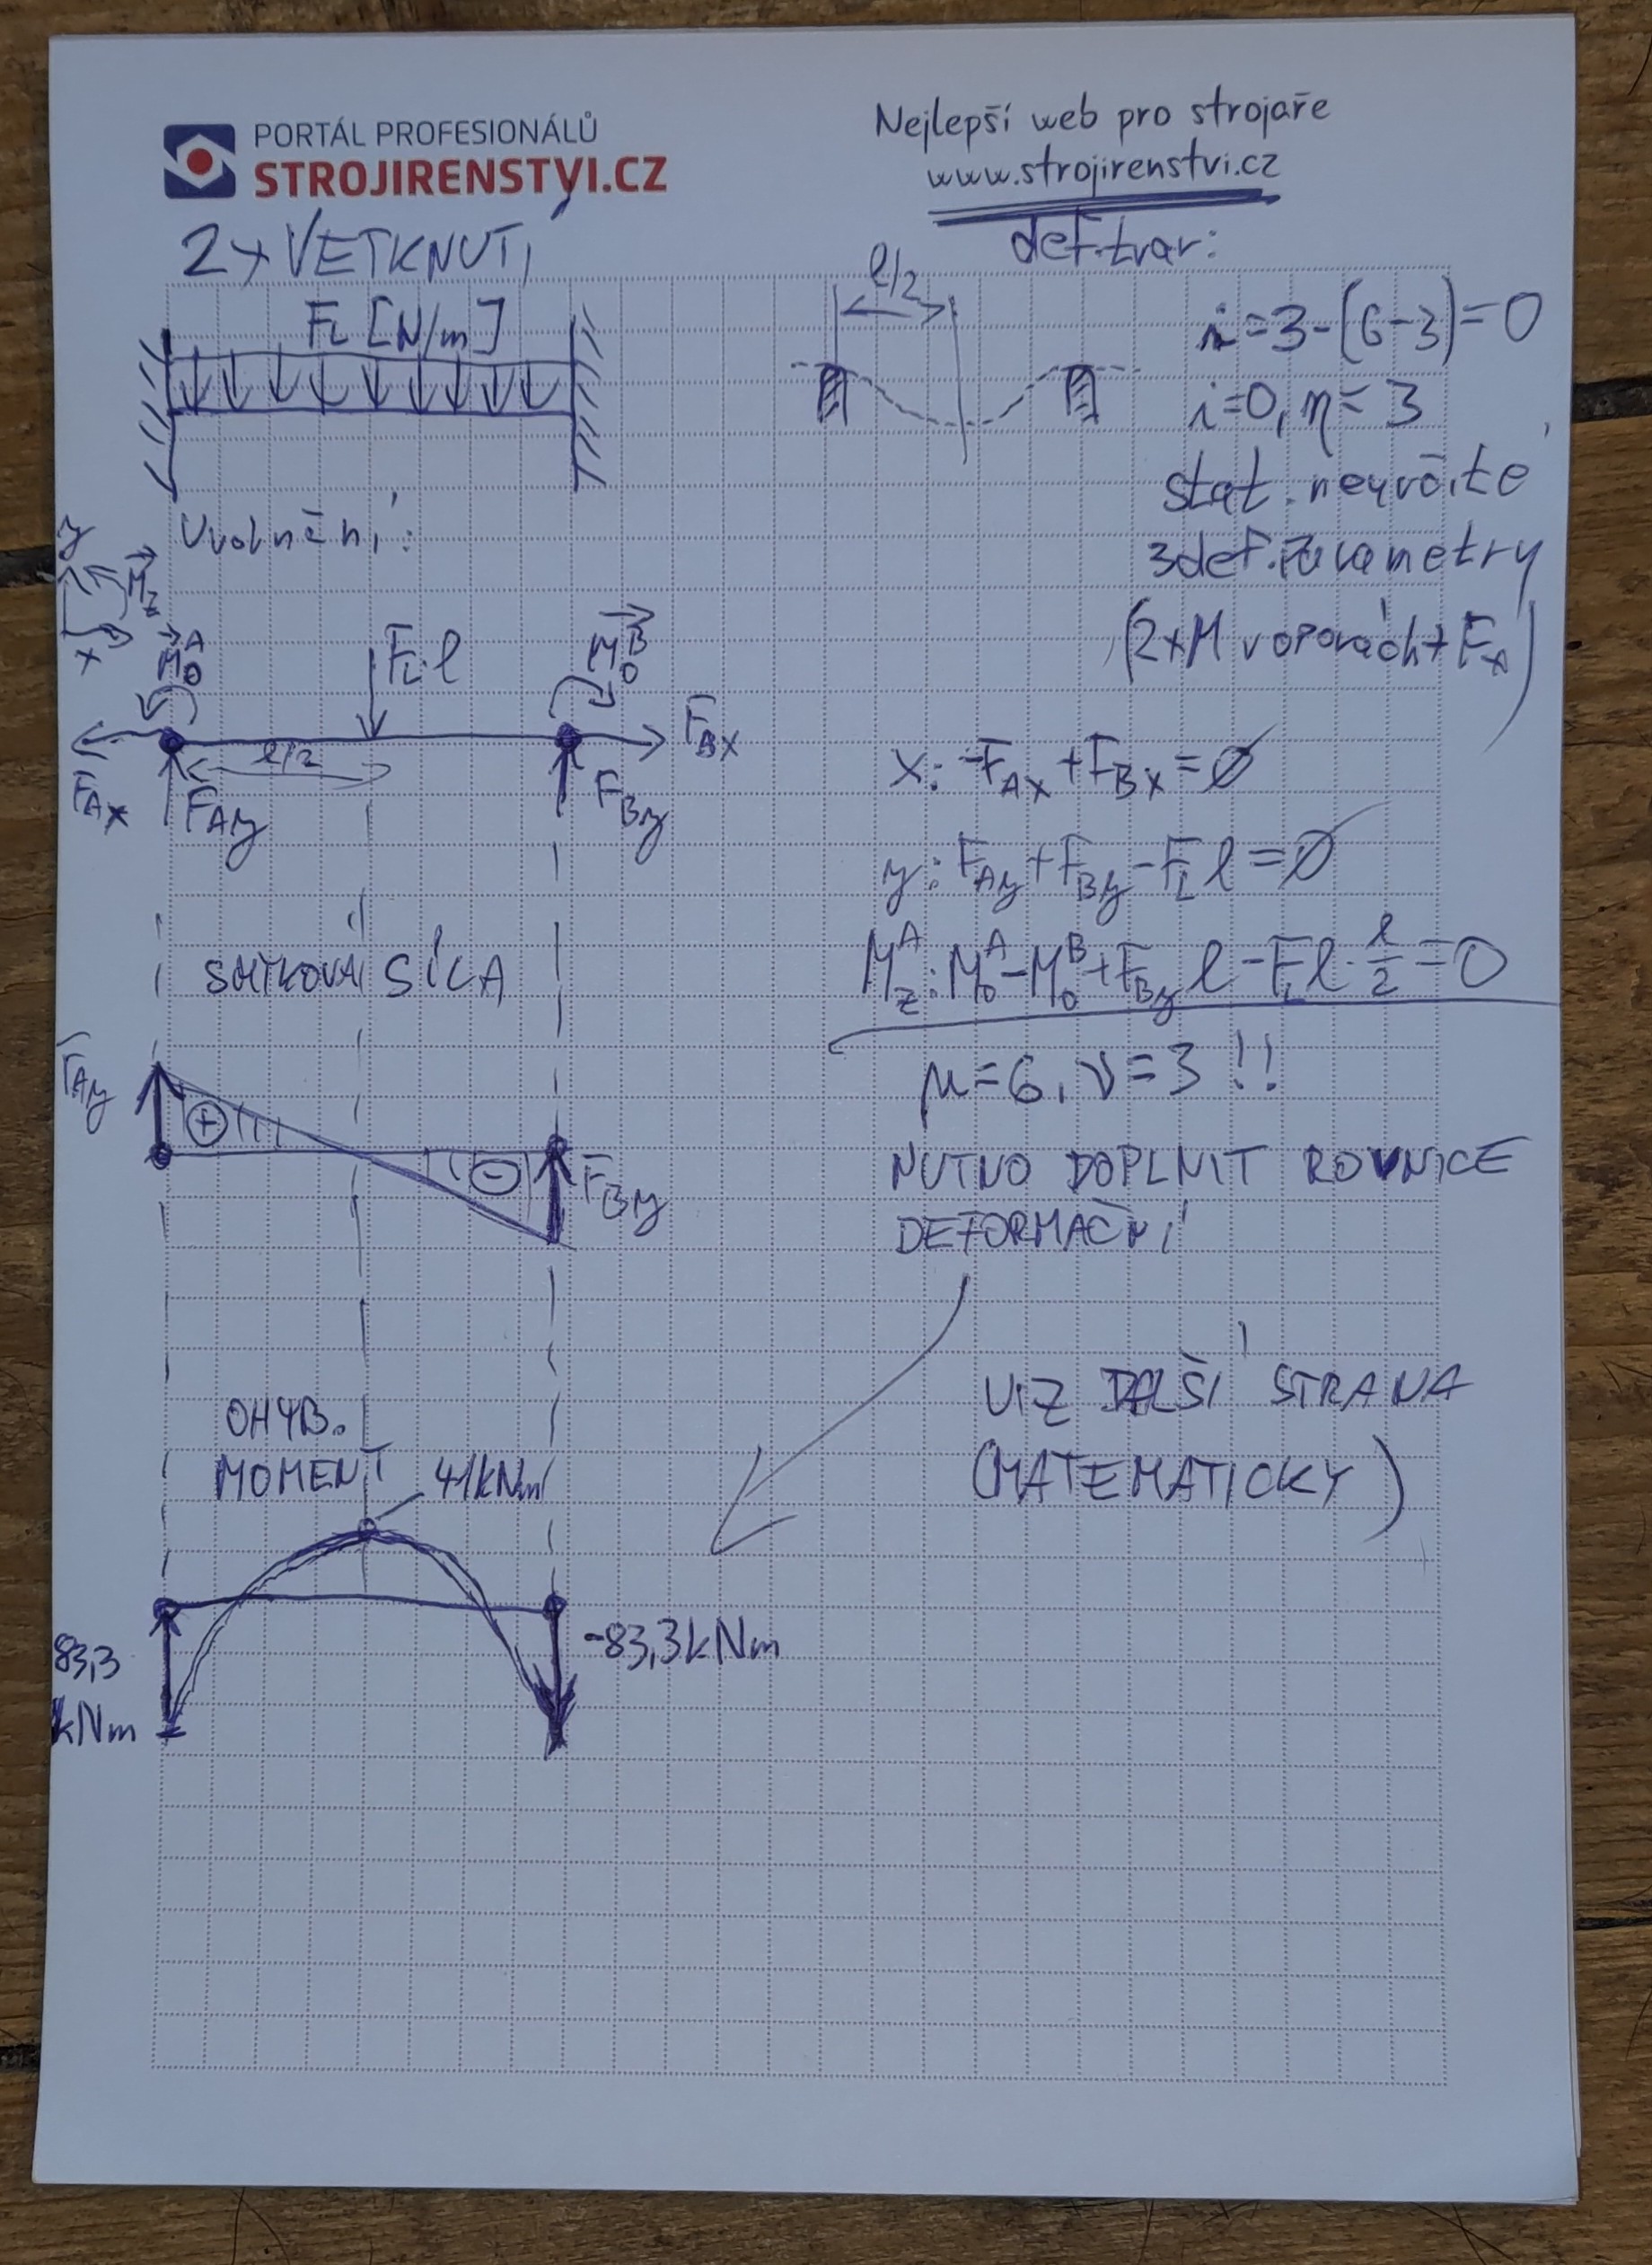 PORTÁL PROFESIONÁLŮ
STROJIRENSTVI.CZ
Nejlepší web pro strojaře
www.strojirenstvi.cz
2x VETKNUTÍ
def.tvar:
FL [N/m]
l/2
i=3-(6-3)=0
i=0, η=3
stat. neurčité
3 def. parametry
(2xM v oporách + Fx)
Uvolnění:
y
Mz
x
M0A
FL·l
M0B
FBx
l/2
FAx
FAy
FBy
x: -FAx+FBx=0
y: FAy+FBy-FL l=0
MzA: M0A-M0B+FBy l-FL l·l/2=0
SMYKOVÁ SÍLA
μ=6, ν=3 !!
FAy
+
-
FBy
NUTNO DOPLNIT ROVNICE
DEFORMAČNÍ
VIZ DALŠÍ STRANA
(MATEMATICKY)
OHYB.
MOMENT
41kNm
83,3
kNm
-83,3kNm